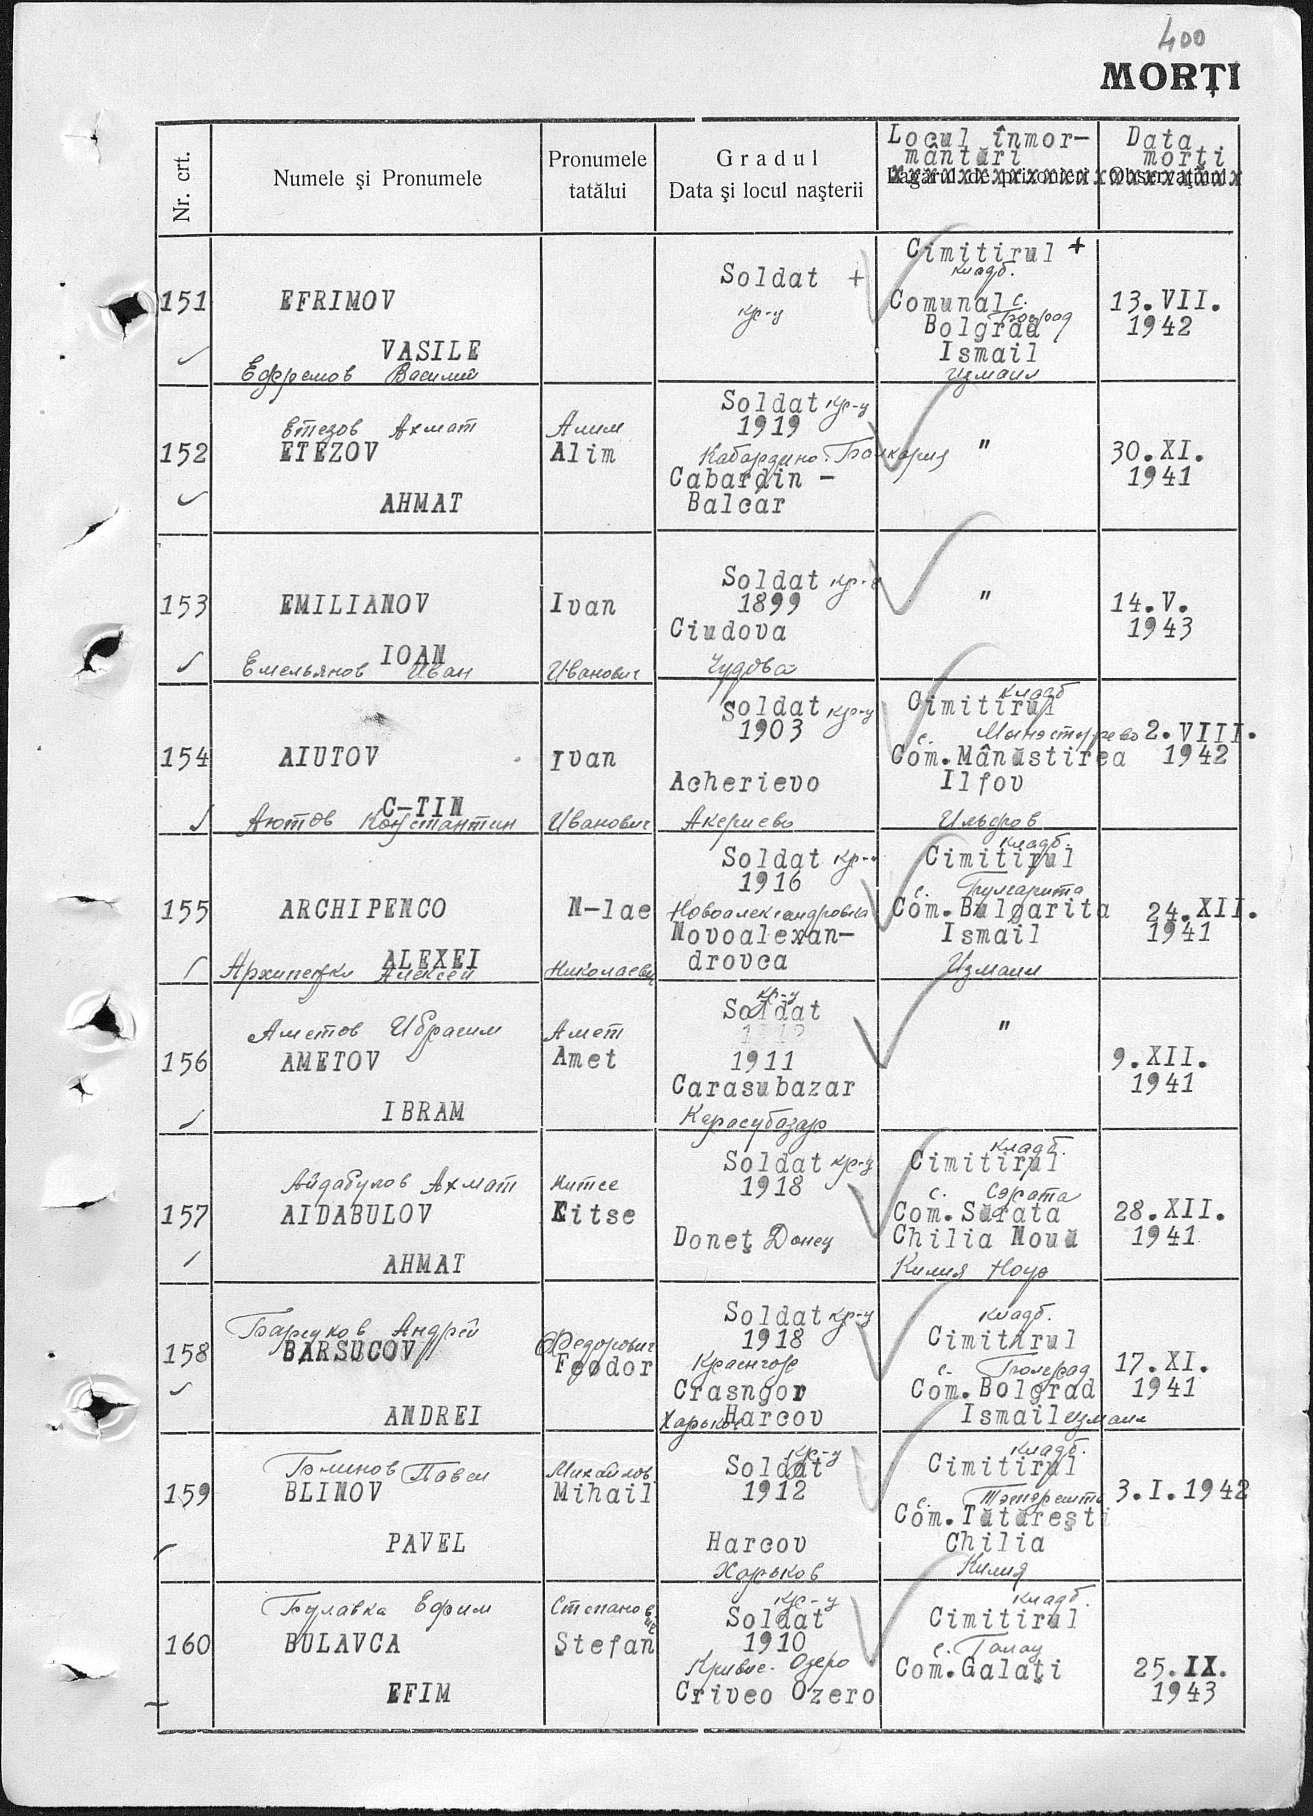 400
MORŢI
Nr. crt.
Numele şi Pronumele
Pronumele
tatălui
Gradul
Data şi locul naşterii
Locul înmor-
mântări
Lagărul de prizonieri
Data
morţi
Observaţiuni
151
EFRIMOV
VASILE
Ефремов Василий
Soldat +
кр-ц
Cimitirul +
кладб.
Comunal с.
Болград
Bolgrad
Ismail
Измаил
13.VII.
1942
152
Етезов Ахмат
ETEZOV
AHMAT
Алим
Alim
Soldat кр-ц
1919
Кабардино-Балкария
Cabardin -
Balcar
"
30.XI.
1941
153
EMILIANOV
IOAN
Емельянов Иван
Ivan
Иванович
Soldat кр-ц
1899
Ciudova
Чудова
"
14.V.
1943
154
AIUTOV
C-TIN
Аютов Константин
Ivan
Иванович
Soldat кр-ц
1903
Acherievo
Акериево
кладб
Cimitirul
с.
Com.Mânăstirea
Ilfov
Ильфов
2.VIII.
1942
155
ARCHIPENCO
ALEXEI
Архипенко Алексей
N-lae
Николаевич
Soldat кр-ц
1916
Новоалександровка
Novoalexan-
drovca
кладб.
Cimitirul
с. Булгарита
Com.Bulgarita
Ismail
Измаил
24.XII.
1941
156
Аметов Ибрагим
AMETOV
IBRAM
Амет
Amet
кр-ц
Soldat
1911
Carasubazar
Карасубазар
"
9.XII.
1941
157
Айдабулов Ахмат
AIDABULOV
AHMAT
Китсе
Kitse
Soldat кр-ц
1918
Doneţ Донец
кладб.
Cimitirul
с. Сэрата
Com.Sărata
Chilia Nouă
Килия Ноуэ
28.XII.
1941
158
Барсуков Андрей
BARSUCOV
ANDREI
Федорович
Feodor
Soldat кр-ц
1918
Краснгор
Crasngor
Харьков
Harcov
кладб.
Cimitirul
с. Болград
Com.Bolgrad
Ismail Измаил
17.XI.
1941
159
Блинов Павел
BLINOV
PAVEL
Михайлов.
Mihail
кр-ц
Soldat
1912
Harcov
Харьков
кладб.
Cimitirul
с. Тэтэрешти
Com.Tătăreşti
Chilia
Килия
3.I.1942
160
Булавка Ефим
BULAVCA
EFIM
Степанович
Ştefan
кр-ц
Soldat
1910
Кривое Озеро
Criveo Ozero
кладб.
Cimitirul
с. Галац
Com.Galaţi
25.IX.
1943